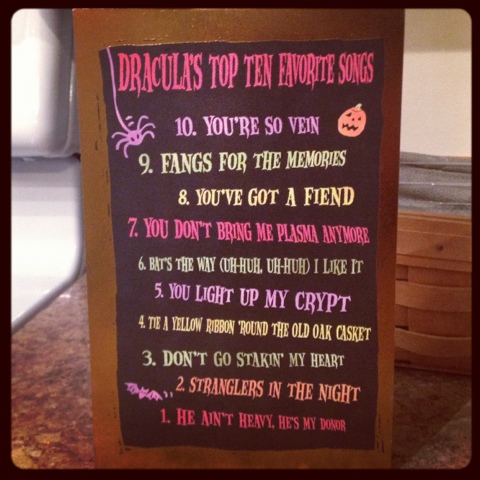 DRACULA'S TOP TEN FAVORITE SONGS
10. YOU'RE SO VEIN
9. FANGS FOR THE MEMORIES
8. YOU'VE GOT A FIEND
7. YOU DON'T BRING ME PLASMA ANYMORE
6. BAT'S THE WAY (UH-HUH, UH-HUH) I LIKE IT
5. YOU LIGHT UP MY CRYPT
4. TIE A YELLOW RIBBON 'ROUND THE OLD OAK CASKET
3. DON'T GO STAKIN' MY HEART
2. STRANGLERS IN THE NIGHT
1. HE AIN'T HEAVY, HE'S MY DONOR